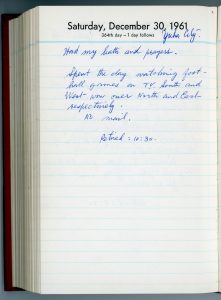 Saturday, December 30, 1961
364th day – 1 day follows
Yuba City.
Had my bath and prayers.
Spent the day watching foot-
ball games on TV. South and
West won over North and East
respectively.
No mail.
Retired - 10:30.